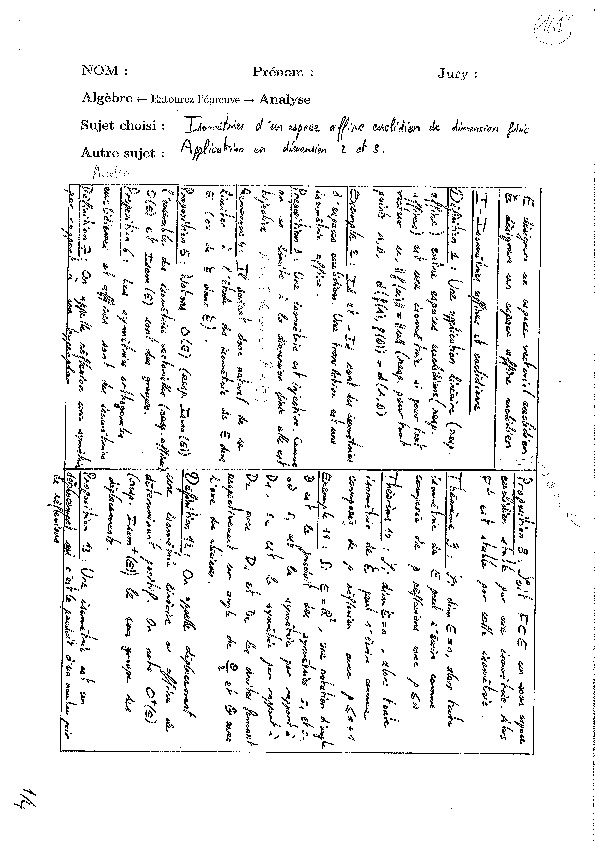 NOM :
Prénom :
Jury :
Algèbre ← Entourez l'épreuve → Analyse
Sujet choisi : Isométries d'un espace affine euclidien de dimension finie
Autre sujet : Application en dimension 2 et 3.
E désigne un espace vectoriel euclidien
désigne un espace affine euclidien
I - Isométries affines et vectorielles
Définition 1 : Une application linéaire (resp
affine) entre espaces euclidiens (resp.
affines) est une isométrie si pour tout
vecteur u, ||f(u)|| = ||u|| (resp. pour tout
points A, B, d(f(A), f(B)) = d(A,B)
Exemple 2 : Id et -Id sont des isométries
d'espaces euclidiens. Une translation est une
isométrie affine.
Proposition 3 : Une isométrie est injective. Comme
on se limite à la dimension finie elle est
bijective
Remarque 4 : Il devient donc naturel de se
limiter à l'étude des isométries de E dans
E (ou de E dans E).
Proposition 5 : Notons O(E) (resp. Isom(E))
l'ensemble des isométries vectorielles (resp affines)
O(E) et Isom(E) sont des groupes.
Proposition 6 : Les symétries orthogonales
euclidiennes et affines sont des isométries
Définition 7 : On appelle réflexion une symétrie
par rapport à un hyperplan
Proposition 8 : Soit F⊂E un sous espace
euclidien stable par une isométrie. Alors
F⊥ est stable par cette isométrie.
Théorème 9 : Si dim E = n, alors toute
isométrie de E peut s'écrire comme
composée de p réflexions avec p ≤ n
Théorème 10 : Si dim E = n, alors toute
isométrie de E peut s'écrire comme
composée de p réflexion avec p ≤ n+1
Exemple 11 : Si E = R², une rotation d'angle
θ est le produit des symétries s₁ et s₂
où s₁ est la symétrie par rapport à
D₁, s₂ est la symétrie par rapport à
D₂ avec D₁ et D₂ les droites formant
respectivement un angle de θ/2 et 0 avec
l'axe des abscisses.
Définition 12 : On appelle déplacement
une isométrie linéaire ou affine de
déterminant positif. On note O⁺(E)
(resp. Isom⁺(E)) le sous groupe des
déplacements.
Proposition 13 : Une isométrie est un
déplacement ssi c'est le produit d'un nombre pair
de réflexions
1/4